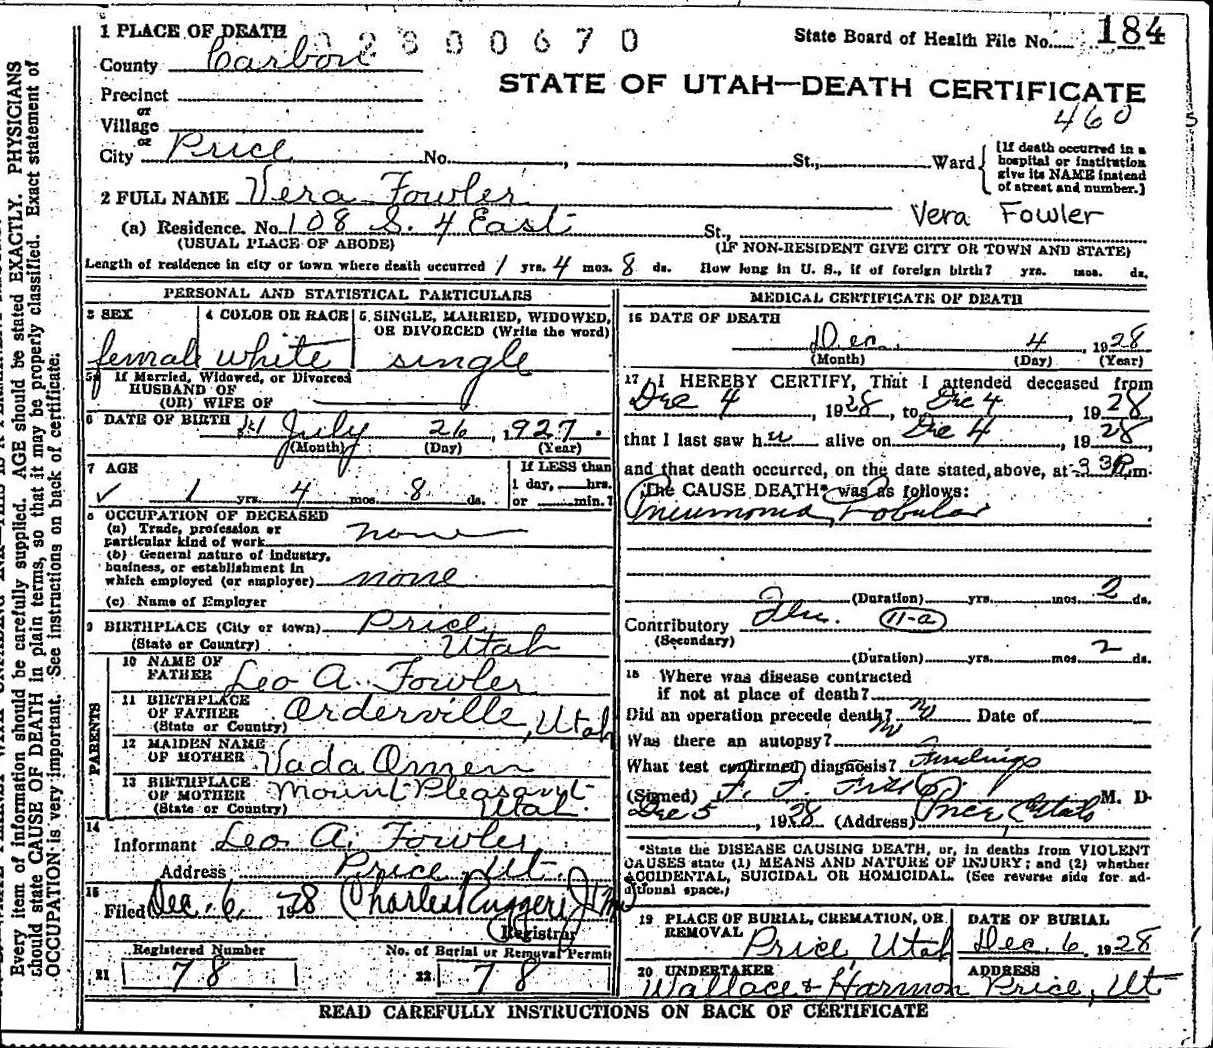 1 PLACE OF DEATH
02800670
State Board of Health File No. 184
County Carbon
STATE OF UTAH—DEATH CERTIFICATE
Precinct
or
Village
460
or
City Price No. , St., Ward
[If death occurred in a hospital or institution give its NAME instead of street and number.]
2 FULL NAME Vera Fowler
Vera Fowler
(a) Residence. No. 108 S. 4 East St.,
(USUAL PLACE OF ABODE) (IF NON-RESIDENT GIVE CITY OR TOWN AND STATE)
Length of residence in city or town where death occurred 1 yrs. 4 mos. 8 ds. How long in U. S., if of foreign birth? yrs. mos. ds.
PERSONAL AND STATISTICAL PARTICULARS
3 SEX female
4 COLOR OR RACE white
5 SINGLE, MARRIED, WIDOWED, OR DIVORCED (Write the word) single
5a If Married, Widowed, or Divorced
HUSBAND OF
(OR) WIFE OF
6 DATE OF BIRTH July 26, 1927.
(Month) (Day) (Year)
7 AGE
If LESS than
1 day, hrs.
or min.?
✓ 1 yrs. 4 mos. 8 ds.
8 OCCUPATION OF DECEASED
(a) Trade, profession or
particular kind of work none
(b) General nature of industry,
business, or establishment in
which employed (or employer) none
(c) Name of Employer
9 BIRTHPLACE (City or town) Price
(State or Country) Utah
PARENTS
10 NAME OF
FATHER Leo A. Fowler
11 BIRTHPLACE
OF FATHER Orderville, Utah
(State or Country)
12 MAIDEN NAME
OF MOTHER Vada
13 BIRTHPLACE
OF MOTHER Mount Pleasant
(State or Country) Utah
14
Informant Leo A. Fowler
Address Price Ut.
15
Filed Dec. 6, 1928 Charles Ruggeri
Registrar
Registered Number No. of Burial or Removal Permit
21 78 22 78
MEDICAL CERTIFICATE OF DEATH
16 DATE OF DEATH
Dec. 4, 1928
(Month) (Day) (Year)
17 I HEREBY CERTIFY, That I attended deceased from
Dec 4, 1928, to Dec 4, 1928,
that I last saw her alive on Dec 4, 1928
and that death occurred, on the date stated, above, at 3 30 P.m.
The CAUSE DEATH* was as follows:
Pneumonia, Lobular
(Duration) yrs. mos. 2 ds.
Contributory Flu. 11-a
(Secondary)
(Duration) yrs. mos. 2 ds.
18 Where was disease contracted
if not at place of death?
Did an operation precede death? no Date of
Was there an autopsy? no
What test confirmed diagnosis? Findings
(Signed) M. D.
Dec 5, 1928 (Address) Price Utah
*State the DISEASE CAUSING DEATH, or, in deaths from VIOLENT
CAUSES state (1) MEANS AND NATURE OF INJURY; and (2) whether
ACCIDENTAL, SUICIDAL OR HOMICIDAL. (See reverse side for ad-
ditional space.)
19 PLACE OF BURIAL, CREMATION, OR
REMOVAL Price, Utah
DATE OF BURIAL
Dec. 6 1928
20 UNDERTAKER
Wallace & Harmon
ADDRESS
Price, Ut
READ CAREFULLY INSTRUCTIONS ON BACK OF CERTIFICATE
Every item of information should be carefully supplied. AGE should be stated EXACTLY. PHYSICIANS
should state CAUSE OF DEATH in plain terms, so that it may be properly classified. Exact statement of
OCCUPATION is very important. See instructions on back of certificate.